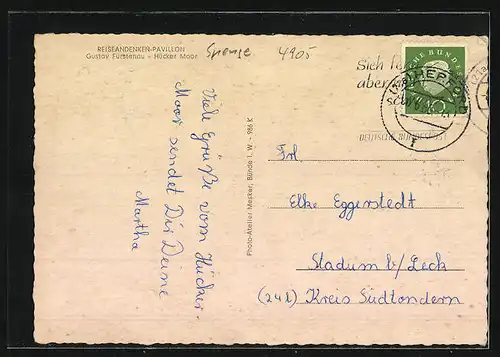 REISEANDENKEN-PAVILLON
Gustav Fürstenau - Hücker Moor
Spenge 4905
Viele Grüße vom Hücker-
Moor sendet Dir Deine
Martha
Photo-Atelier Mesker, Bünde i. W. - 986 K
Sich
aber
HERFORD
10
DEUTSCHE BUNDESPOST
Frl
Elke Eggerstedt
Stadum b/Leck
(24b) Kreis Südtondern